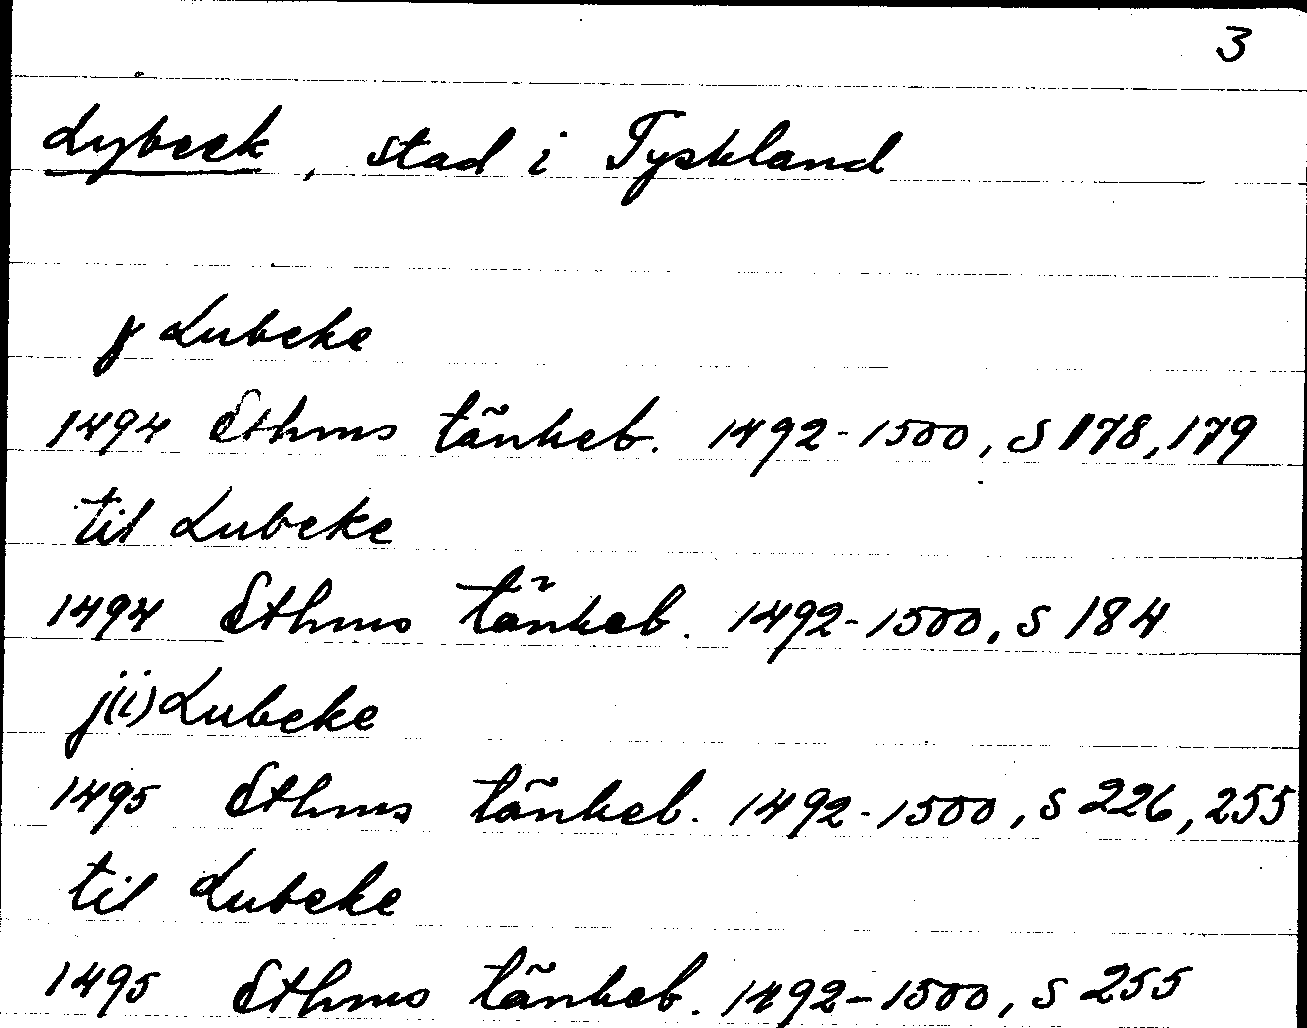 3
Lybeck, stad i Tyskland
j Lubeke
1494 Sthms tänkeb. 1492-1500, s 178, 179
til Lubeke
1494 Sthms tänkeb. 1492-1500, s 184
j(i) Lubeke
1495 Sthms tänkeb. 1492-1500, s 226, 255
til Lubeke
1495 Sthms tänkeb. 1492-1500, s 255